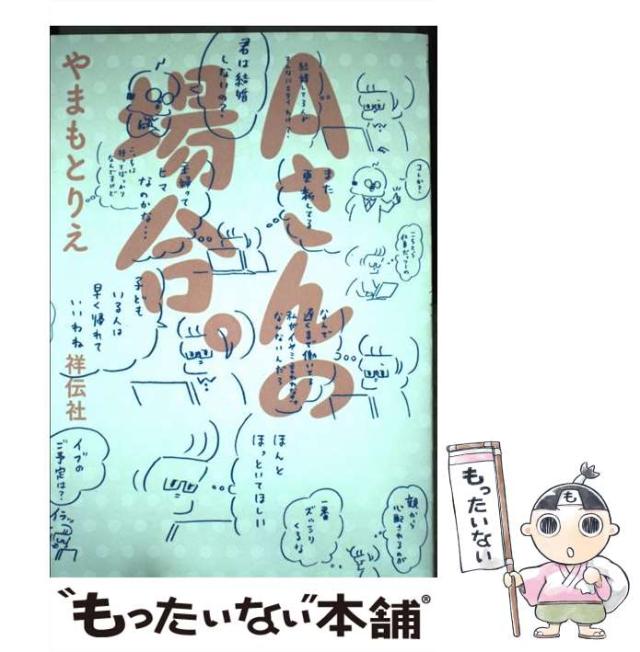 Aさんの
場合。
やまもとりえ
祥伝社
君は結婚
しないの？
また
更新してる
主婦って
ヒマ
なのかな…
子ども
いる人は
早く帰れて
いいわね
なんで
遅くまで働いてる
私がイヤミ言われなきゃ
なんないんだろ
ほんと
ほっといてほしい
イブの
ご予定は？
イラッ
一番
ズッシリ
くるな
顔から
心配されるのが
もったいない
も
“もったいない本舗®